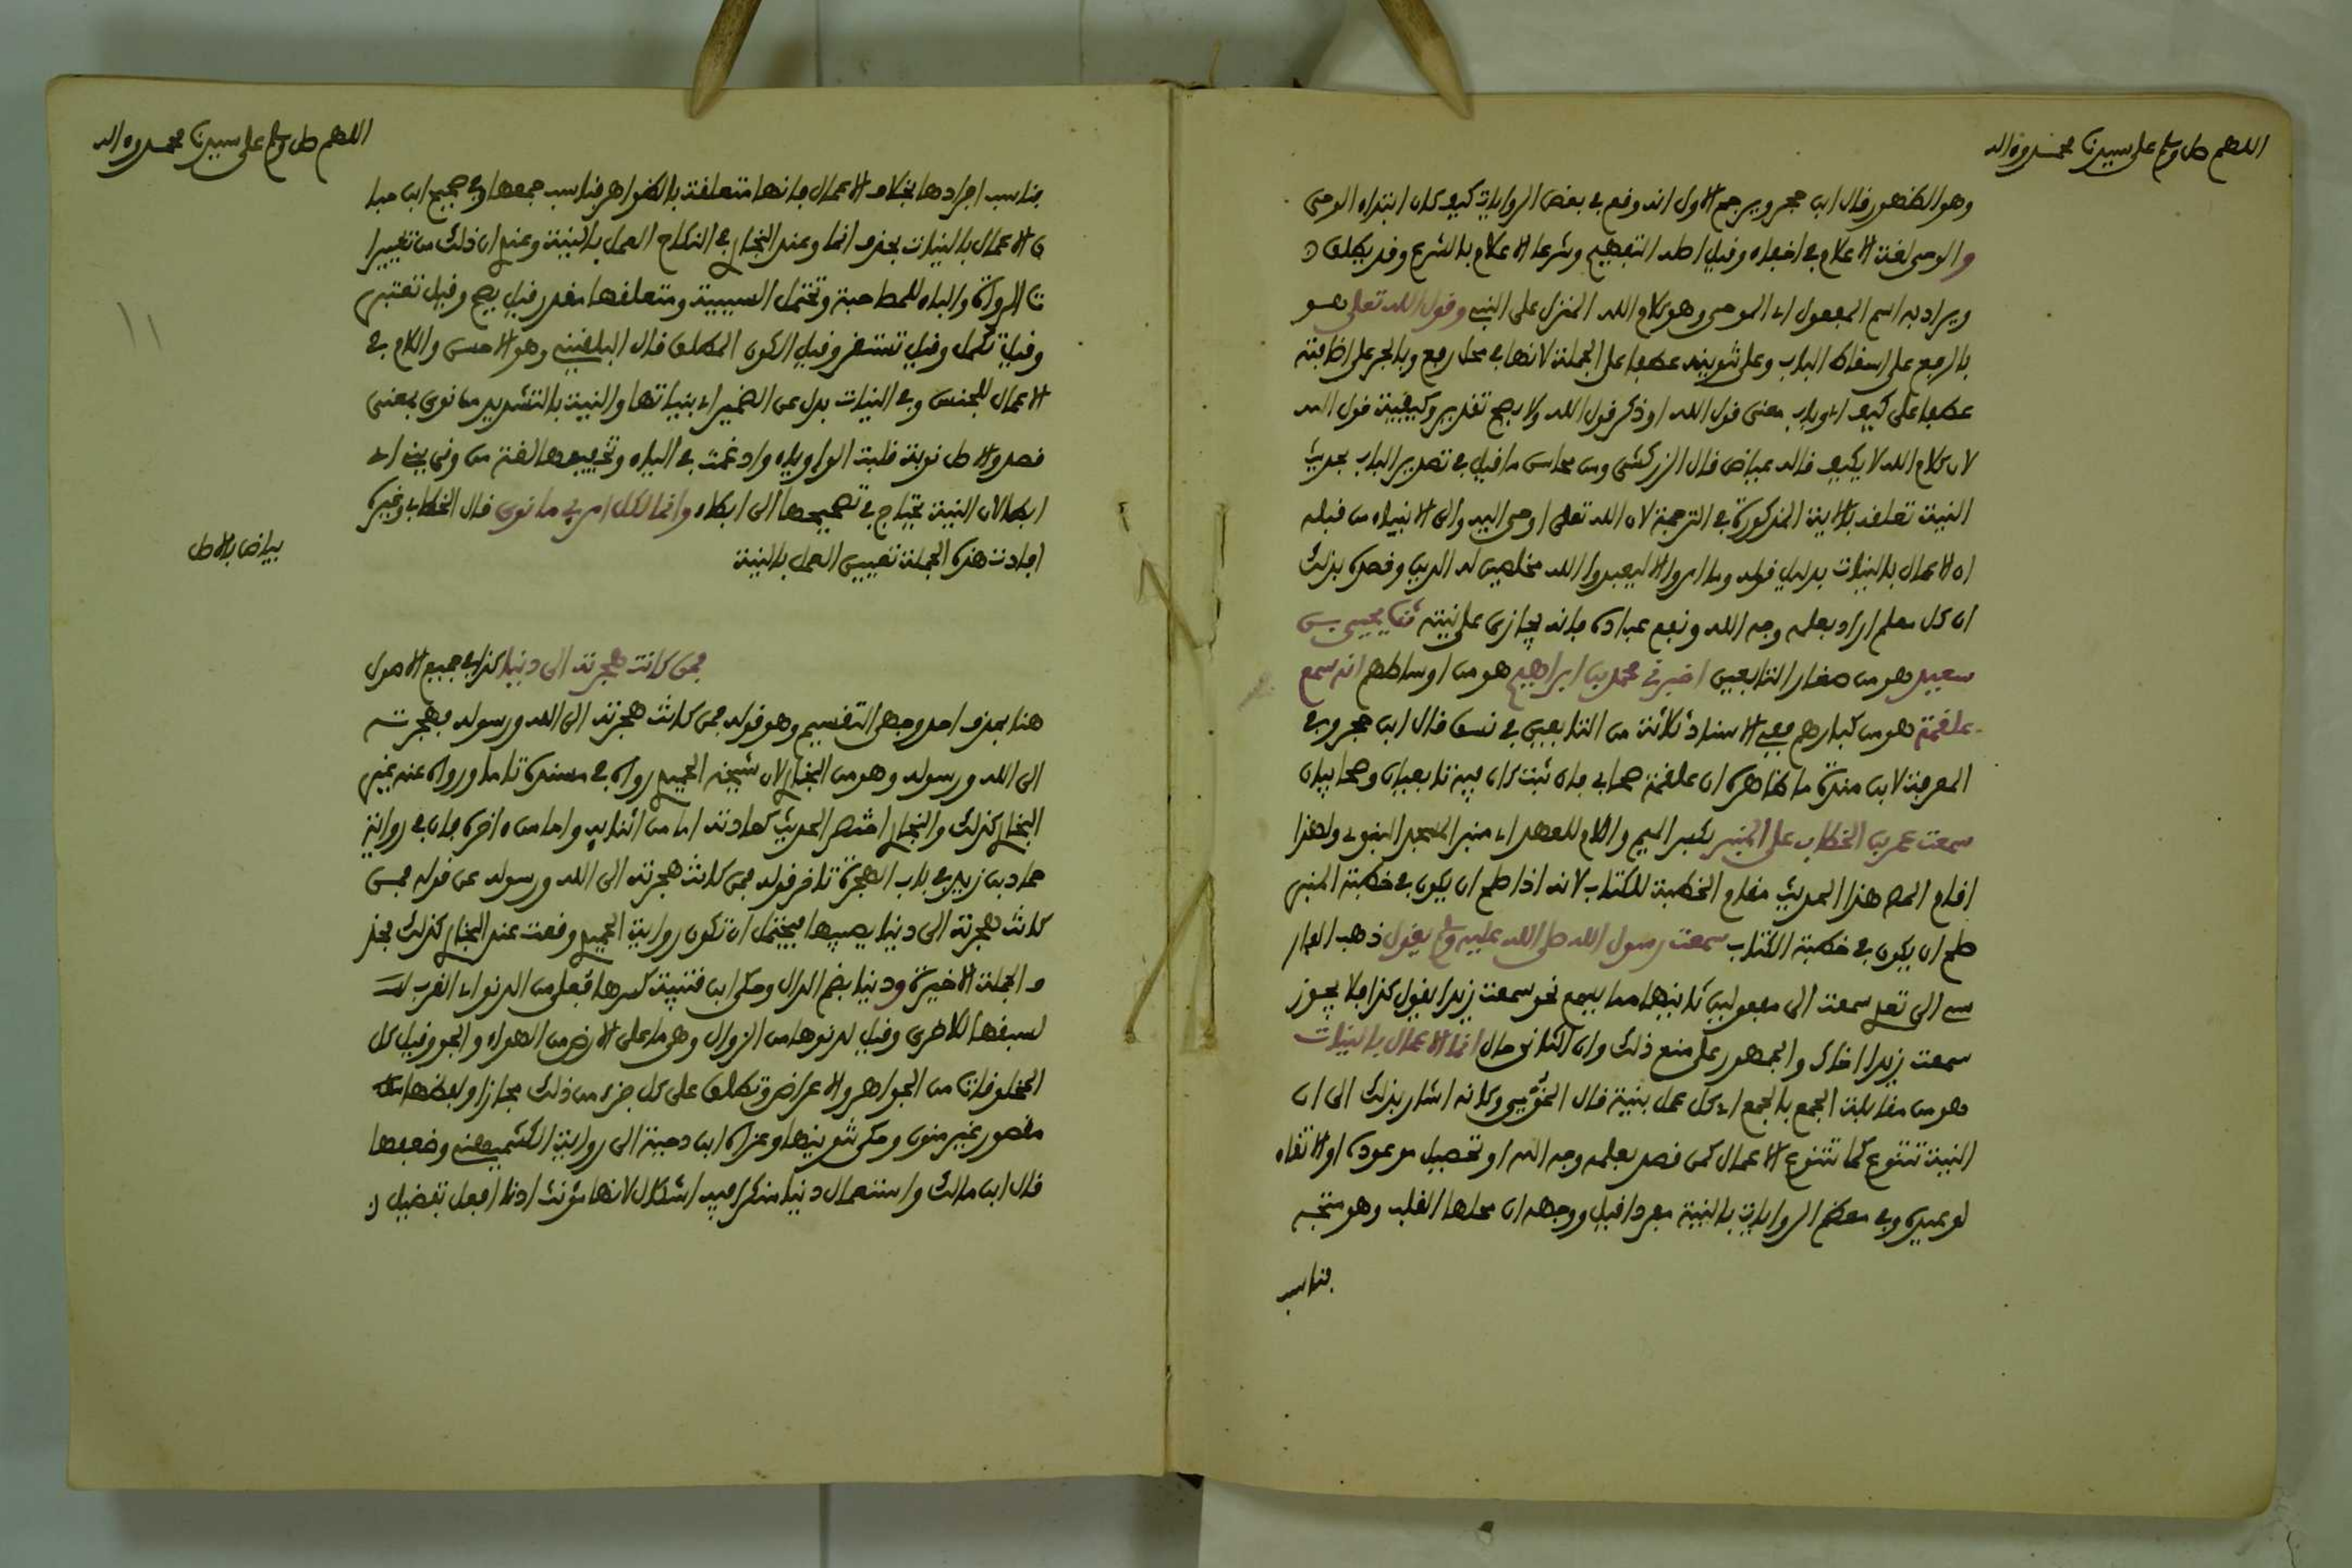 اللهم صل وسلم على سيدنا محمد وءاله
وهو الظهور قال ابن حجر ويرجح الاول انه وقع في بعض الروايات كيف كان ابتداء الوحي
والوحي لغة الاعلام في اخفاء وقيل اصله التفهيم وشرعا الاعلام بالشرع وقد يطلق
ويراد به اسم المفعول اي الموحى وهو كلام الله المنزل على النبي وقول الله تعلى هو
بالرفع على اسقاط الباب وعلى تنوينه عطفا على الجملة لانها في محل رفع وبالجر على اضافته
عطفا على كيف اي وباب معنى قول الله او ذكر قول الله ولا يصح تقدير وكيفية قول الله
لان كلام الله لا يكيف قاله عياض قال الزركشي ومن محاسن ما قيل في تصدير الباب بحديث
النية تعلقه بالاية المذكورة في الترجمة لان الله تعلى اوحى اليه والى الانبياء من قبله
ان الاعمال بالنيات بدليل قوله وما امروا الا ليعبدوا الله مخلصين له الدين وقصده بذلك
ان كل معلم اراد بعلمه وجه الله ونفع عباده فانه يجازى على نيته ثنا يحيى بن
سعيد هو من صغار التابعين اخبرني محمد بن ابراهيم هو من اوساطهم انه سمع
علقمة هو من كبارهم ففي الاسناد ثلاثة من التابعين في نسق قال ابن حجر وفي
المعرفة لابن منده ما ظاهره ان علقمة صحابي فان ثبت كان فيه تابعيان وصحابيان
سمعت عمر بن الخطاب على المنبر بكسر الميم واللام للعهد اي منبر المسجد النبوي ولهذا
اقام المص هذا الحديث مقام الخطبة للكتاب لانه اذا صلح ان يكون في خطبة المنبر
صلح ان يكون في خطبة الكتاب سمعت رسول الله صلى الله عليه وسلم يقول ذهب الفار
سي الى تعدي سمعت الى مفعولين ثانيهما مما يسمع نحو سمعت زيدا يقول كذا فلا يجوز
سمعت زيدا اخاك والجمهور على منع ذلك وان الثاني حال انما الاعمال بالنيات
هو من مقابلة الجمع بالجمع اي كل عمل بنية قال الخويي وكانه اشار بذلك الى ان
النية تتنوع كما تتنوع الاعمال كمن قصد بعلمه وجه الله او تحصيل موعوده او الاتقاء
لوعيده وفي معظم الروايات بالنية مفردا قيل ووجهه ان محلها القلب وهو متحد
فناسب
اللهم صل وسلم على سيدنا محمد وءاله
فناسب افرادها بخلاف الاعمال فانها متعلقة بالظواهر فناسب جمعها وفي صحيح ابن حبا
ن الاعمال بالنيات بحذف انما وعند البخاري في النكاح العمل بالنية وعندي ان ذلك من تغيير ا
ت الرواة والباء للمصاحبة وتحتمل السببية ومتعلقها مقدر قيل يصح وقيل تعتبر
وقيل تكمل وقيل تستقر وقيل الكون المطلق قال البلقيني وهو الاحسن واللام في
الاعمال للجنس وفي النيات بدل عن الضمير اي بنياتها والنية بالتشديد من نوى بمعنى
قصد والاصل نوية قلبت الواو ياء وادغمت في الياء وتخفيفها لغة من ونى يني اي
ابطا لان النية يحتاج في تصحيحها الى ابطاء وانما لكل امرئ ما نوى قال الخطابي وغيره
افادت هذه الجملة تعيين العمل بالنية
بياض بالاصل
فمن كانت هجرته الى دنيا كذا في جميع الاصول
هنا بحذف احد وجهي التقسيم وهو قوله فمن كانت هجرته الى الله ورسوله فهجرته
الى الله ورسوله وهو من البخاري لان شيخه الحميدي رواه في مسنده تاما ورواه عنه غير
البخاري كذلك والبخاري اختصر الحديث كعادته اما من اثنائه واما من ءاخره فان في رواية
حماد بن زيد في باب الهجرة تاخر قوله فمن كانت هجرته الى الله ورسوله عن قوله فمن
كانت هجرته الى دنيا يصيبها فيحتمل ان تكون رواية الحميدي وقعت عند البخاري كذلك فحذ
ف الجملة الاخيرة ودنيا بضم الدال وحكى ابن قتيبة كسرها فعلى من الدنو اي القرب
لسبقها للاخرى وقيل لدنوها من الزوال وهي ما على الارض من الهواء والجو وقيل كل
المخلوقات من الجواهر والاعراض وتطلق على كل جزء من ذلك مجازا ولفظها
مقصور غير منون وحكي تنوينها وعزاه ابن دحية الى رواية الكشميهني وضعفها
قال ابن مالك واستعمال دنيا منكرا فيه اشكال لانها مؤنث ادنى افعل تفضيل